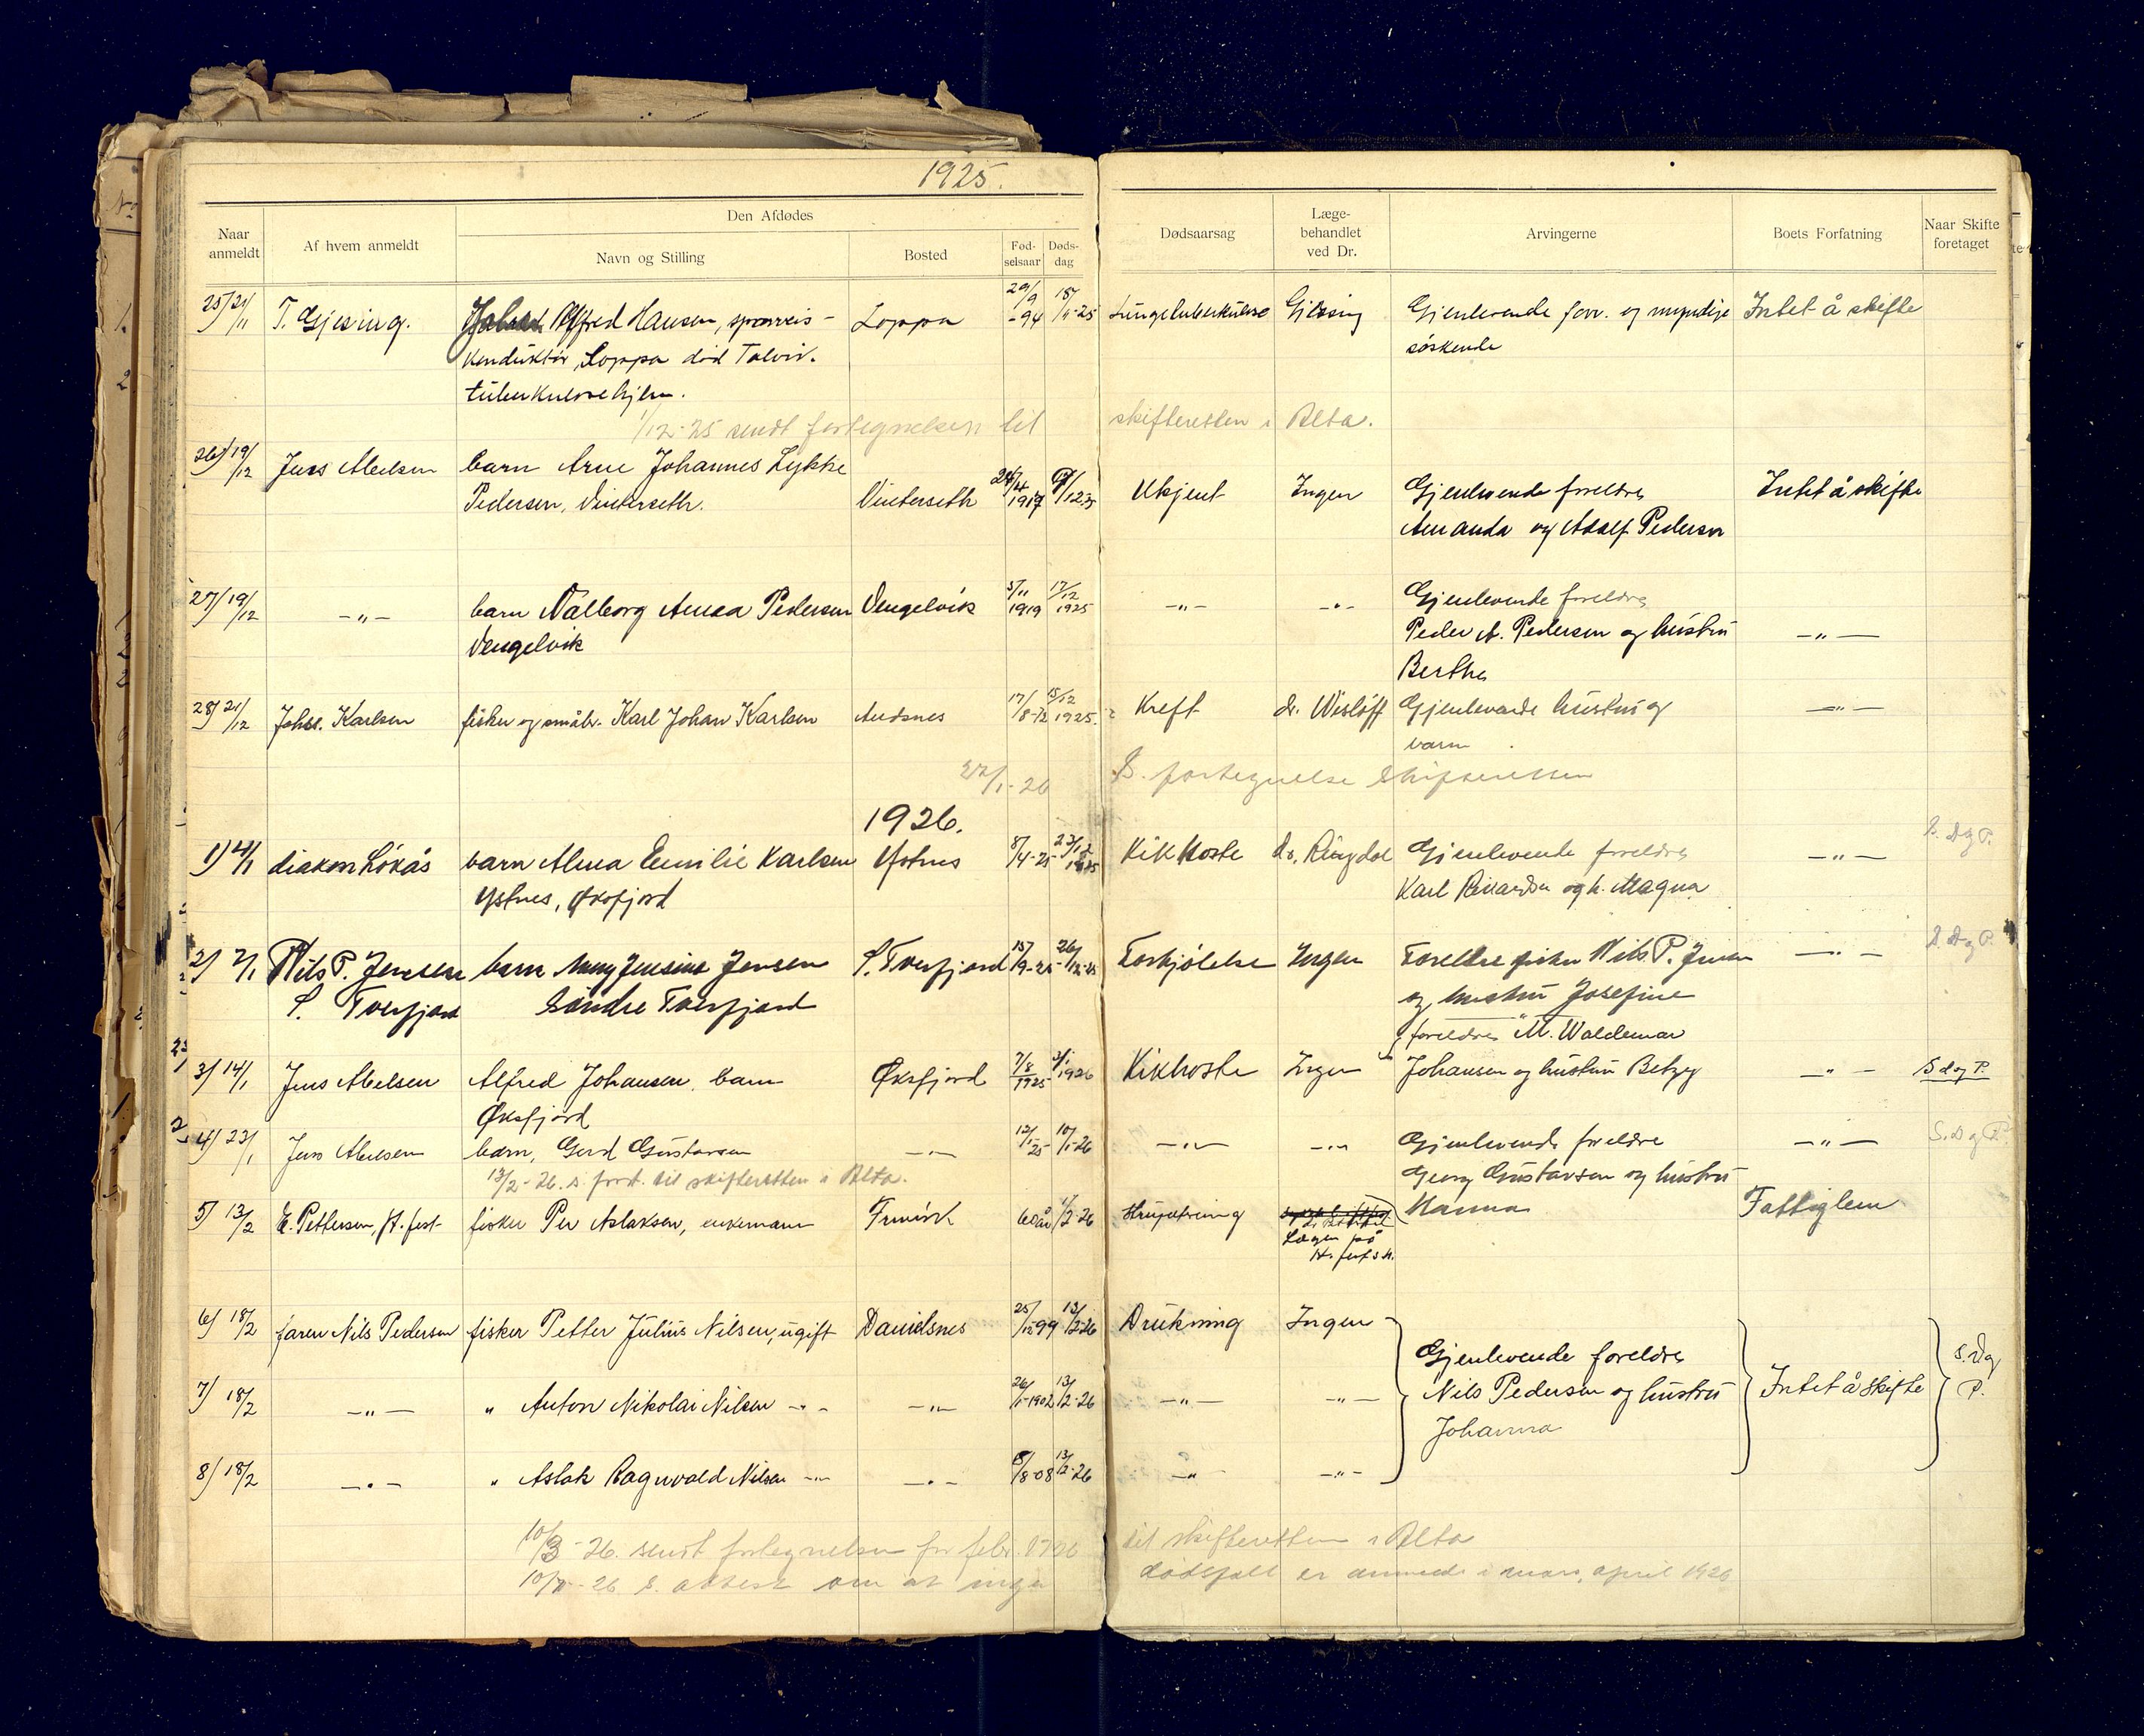 1925.
Naar anmeldt
Af hvem anmeldt
Den Afdødes
Navn og Stilling
Bosted
Fød-selsaar
Døds-dag
Dødsaarsag
Læge-behandlet ved Dr.
Arvingerne
Boets Forfatning
Naar Skifte foretaget
25/ 21/11 T. Gjessing. Alfred Hansen, Loppa 29/9 -94 Lungetuberkulose Gjessing Gjenlevende forr. og myndige Intet å skifte
konduktör, Loppa död Talvik søskende
tuberkulosehjem.
1/12-25 sendt fortegnelsen til skifteretten i Alta.
26/ 19/12 Jens Abelsen barn Arne Johannes Lykke
Pedersen, Vinterseth. Vinterseth Ukjent Ingen Gjenlevende foreldre Intet å skifte
Amanda og Adolf Pedersen
27/ 19/12 —„— barn Valborg Anna Pedersen Vengelvik 5/11 1919 17/12 1925 —„— —„— Gjenlevende foreldre
Vengelvik Peder A. Pedersen og hustru —„—
Berthe
28/ 21/12 Johs. Karlsen fisker og småbr. Karl Johan Karlsen Andsnes 17/8-72 15/12 1925. Kreft dr. Wisløff Gjenlevende hustru og —„—
barn
22/1-26 S. fortegnelse skifteretten
1926.
1) 4/1 diakon Løkås barn Alma Emilie Karlsen Ystnes 8/4-25 23/12 1925 Kikhoste dr. Ringdal Gjenlevende foreldre —„— S. D og P.
Ystnes, Øksfjord Karl Rikardsen og h. Magna
2) 7/1 Nils P. Jensen barn Jensine Jensen S. Tverfjord 15/9-25 26/12-25 Forkjølelse Ingen Foreldre fisker Nils P. Jensen —„— S. D og P.
S. Tverfjord Söndre Tverfjord og hustru Josefine
foreldre M. Waldemar
3) 14/1 Jens Abelsen Alfred Johansen, barn Øksfjord 7/8 1925 1926 Kikhoste Ingen Johansen og hustru Betzy —„— S d og P.
Øksfjord
4) 23/1 Jens Abelsen barn, Gerd Gustavsen —„— 12/1-25 10/1-26 —„— —„— Gjenlevende foreldre —„— S. D og P.
13/2-26. s. fort. til skifteretten i Alta. Georg Gustavsen og hustru
5) 13/2 E. Pettersen, H. fest- fisker Per Aslaksen, enkemann 60 år /2-26 Hanna Fattiglem
Lægen på
H. fest s.h.
6) 18/2 faren Nils Pedersen fisker Petter Julius Nilsen, ugift Danielsnes 25/12-99 13/2-26 Drukning Ingen
Gjenlevende foreldre S. D og
7) 18/2 —„— „ Anton Nikolai Nilsen —„— —„— 26/1-1902 13/2-26 —„— —„— Nils Pedersen og hustru Intet å skifte P.
Johanna
8) 18/2 —„— „ Aslak Ragnvald Nilsen —„— —„— 8/8-08 13/2-26 —„— —„—
10/3-26. sendt fortegnelsen for febr. 1926 til skifteretten i Alta
-26 S. attest om at ingen dødsfall er anmeldt i mars, april 1926